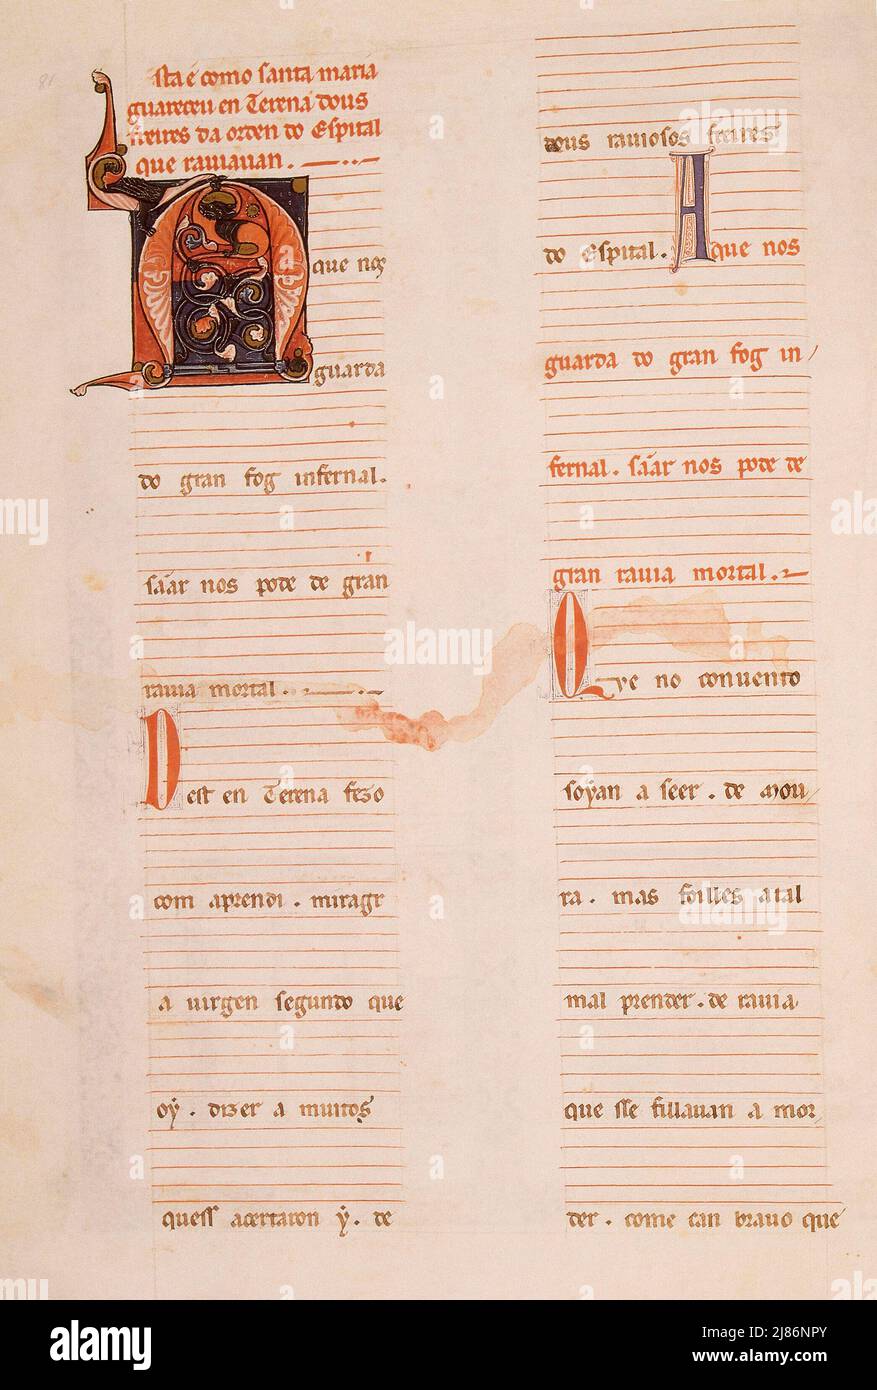 81
Esta é como santa maria
guareceu en Terena dous
freires da orden do Espital
que rauiauan.
A que nos
guarda
do gran fog infernal.
sãar nos pode de gran
rauia mortal.
Dest en Terena fezo
com aprendi. miragr
a uirgen segundo que
oý. dizer a muitos
quess acertaron ý. de
dous rauiosos freires
do Espital. A que nos
guarda do gran fog in/
fernal. sãar nos pode de
gran rauia mortal.
Que no conuento
soýan a seer. de mou/
ra. mas foilles atal
mal prender. de rauia
que sse fillauan a mor/
der. come can brauo que
alamy
Image ID: 2J86NPY
www.alamy.com